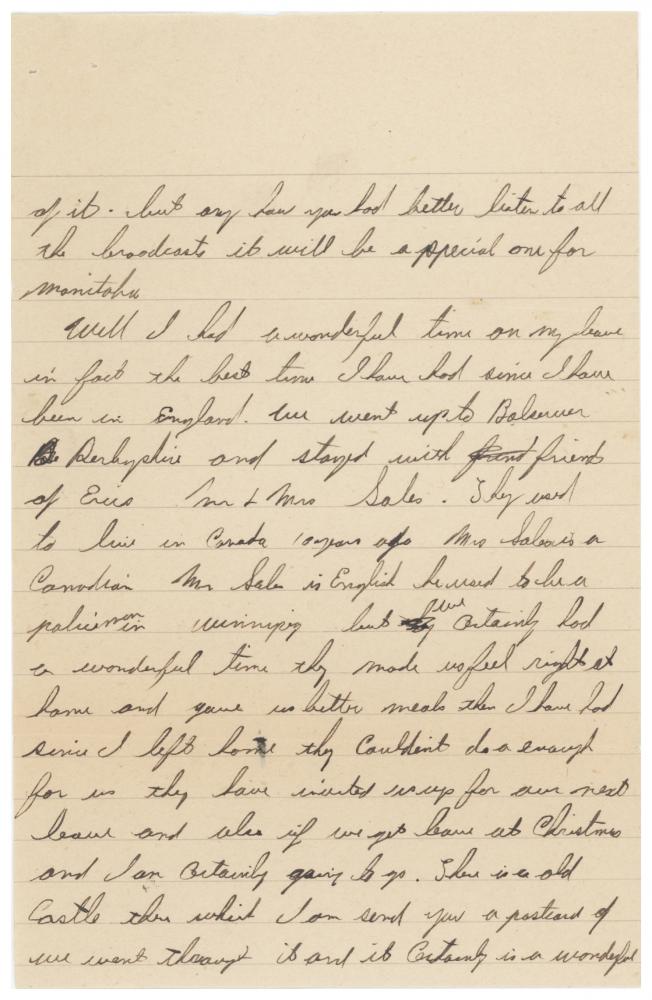 of it. but any how you had better listen to all
the broadcasts it will be a special one for
Manitoba
Well I had a wonderful time on my leave
in fact the best time I have had since I have
been in England. We went up to Bolsover
Derbyshire and stayed with friends
of Erics Mr & Mrs Sales. They used
to live in Canada 10 years ago Mrs Sales is a
Canadian Mr Sales is English he used to be a
policeman in Winnipeg but we certainly had
a wonderful time they made us feel right at
home and gave us better meals then I have had
since I left home they couldn't do a enough
for us they have invited us up for our next
leave and also if we get leave at Christmas
and I am certainly going to go. There is a old
Castle there which I am send you a postcard of
we went through it and it certainly is a wonderful